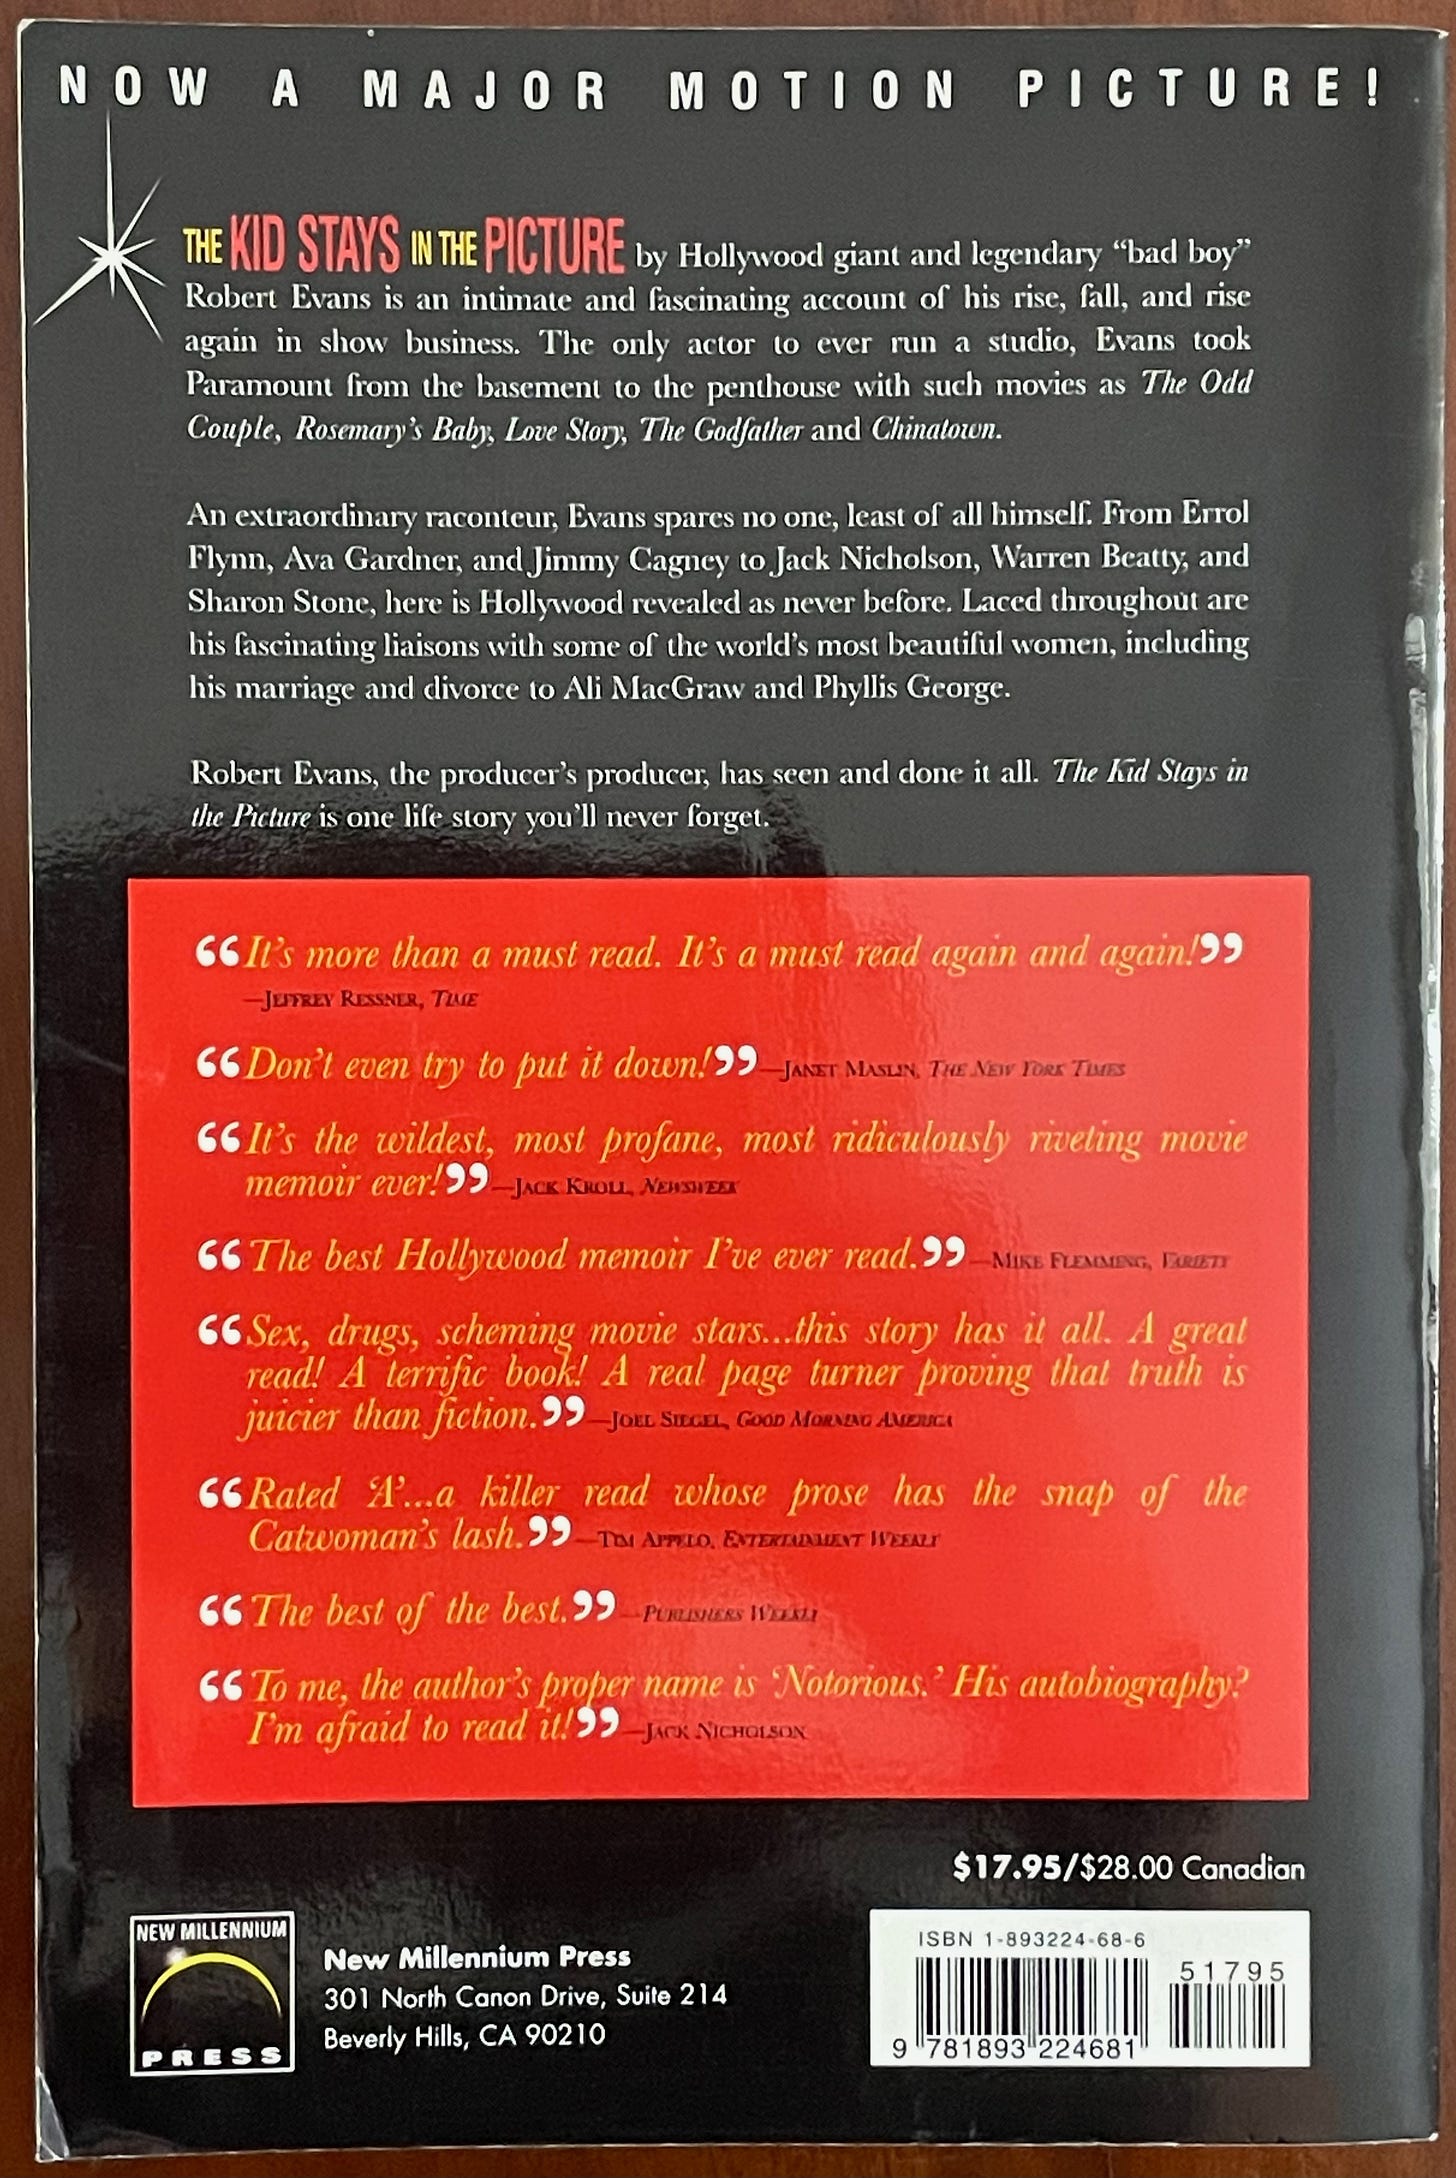 NOW A MAJOR MOTION PICTURE!
THE KID STAYS IN THE PICTURE by Hollywood giant and legendary “bad boy”
Robert Evans is an intimate and fascinating account of his rise, fall, and rise
again in show business. The only actor to ever run a studio, Evans took
Paramount from the basement to the penthouse with such movies as The Odd
Couple, Rosemary’s Baby, Love Story, The Godfather and Chinatown.
An extraordinary raconteur, Evans spares no one, least of all himself. From Errol
Flynn, Ava Gardner, and Jimmy Cagney to Jack Nicholson, Warren Beatty, and
Sharon Stone, here is Hollywood revealed as never before. Laced throughout are
his fascinating liaisons with some of the world’s most beautiful women, including
his marriage and divorce to Ali MacGraw and Phyllis George.
Robert Evans, the producer’s producer, has seen and done it all. The Kid Stays in
the Picture is one life story you’ll never forget.
“It’s more than a must read. It’s a must read again and again!”
—Jeffrey Ressner, Time
“Don’t even try to put it down!” —Janet Maslin, The New York Times
“It’s the wildest, most profane, most ridiculously riveting movie
memoir ever!” —Jack Kroll, Newsweek
“The best Hollywood memoir I’ve ever read.” —Mike Flemming, Variety
“Sex, drugs, scheming movie stars...this story has it all. A great
read! A terrific book! A real page turner proving that truth is
juicier than fiction.” —Joel Siegel, Good Morning America
“Rated ‘A’...a killer read whose prose has the snap of the
Catwoman’s lash.” —Tim Appelo, Entertainment Weekly
“The best of the best.” —Publishers Weekly
“To me, the author’s proper name is ‘Notorious.’ His autobiography?
I’m afraid to read it!” —Jack Nicholson
$17.95/$28.00 Canadian
NEW MILLENNIUM
PRESS
New Millennium Press
301 North Canon Drive, Suite 214
Beverly Hills, CA 90210
ISBN 1-893224-68-6
51795
9 781893 224681